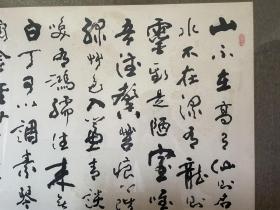 山不在高有仙則名
水不在深有龍則
靈斯是陋室唯
吾德馨苔痕上階
綠草色入簾青談
笑有鴻儒往來無
白丁可以調素琴
金經